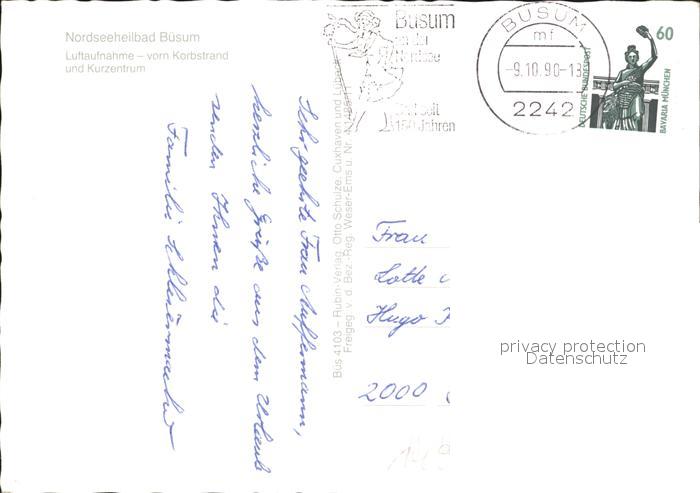 Nordseeheilbad Büsum
Luftaufnahme – vorn Korbstrand
und Kurzentrum
Sehr geehrte Frau
herzliche Grüße aus dem Urlaub
senden Ihnen die
Familie
Büs 4103 – Rubin-Verlag, Otto Schulze, Cuxhaven und
Freigeg. v. d. Bez.-Reg. Weser-Ems u. Nr.
Büsum
an der
Nordsee
seit
150 Jahren
BÜSUM
mf
-9.10.90-18
2242
60
DEUTSCHE BUNDESPOST
BAVARIA MÜNCHEN
Frau
Lotte
Hugo
2000
privacy protection
Datenschutz